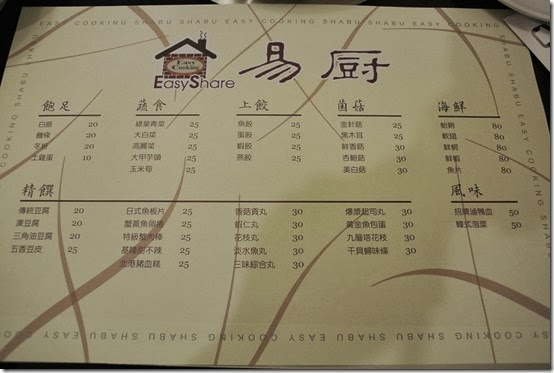 EASY COOKING SHABU SHABU EASY COOKING SHABU SHABU EASY COOKING
Easy Cooking
EasyShare
易廚
飽足
白飯 20
麵條 20
冬粉 20
土雞蛋 10
蔬食
綠葉青菜 25
大白菜 25
高麗菜 25
大甲芋頭 25
玉米筍 25
上餃
魚餃 25
蛋餃 25
蝦餃 25
燕餃 25
菌菇
金針菇 25
黑木耳 25
鮮香菇 30
杏鮑菇 30
美白菇 30
海鮮
80
80
80
鮮蝦 80
魚片 80
精饌
傳統豆腐 20
凍豆腐 20
三角油豆腐 20
五香豆皮 25
日式魚板片 25
蟹黃魚 25
特級蟹 25
不辣 25
北港豬血糕 25
香菇貢丸 30
蝦仁丸 30
花枝丸 30
淡水魚丸 30
三味綜合丸 30
爆漿起司丸 30
黃金魚包蛋 30
九層塔花枝 30
干貝鱘味條 30
風味
招牌滷鴨血 50
韓式泡菜 50